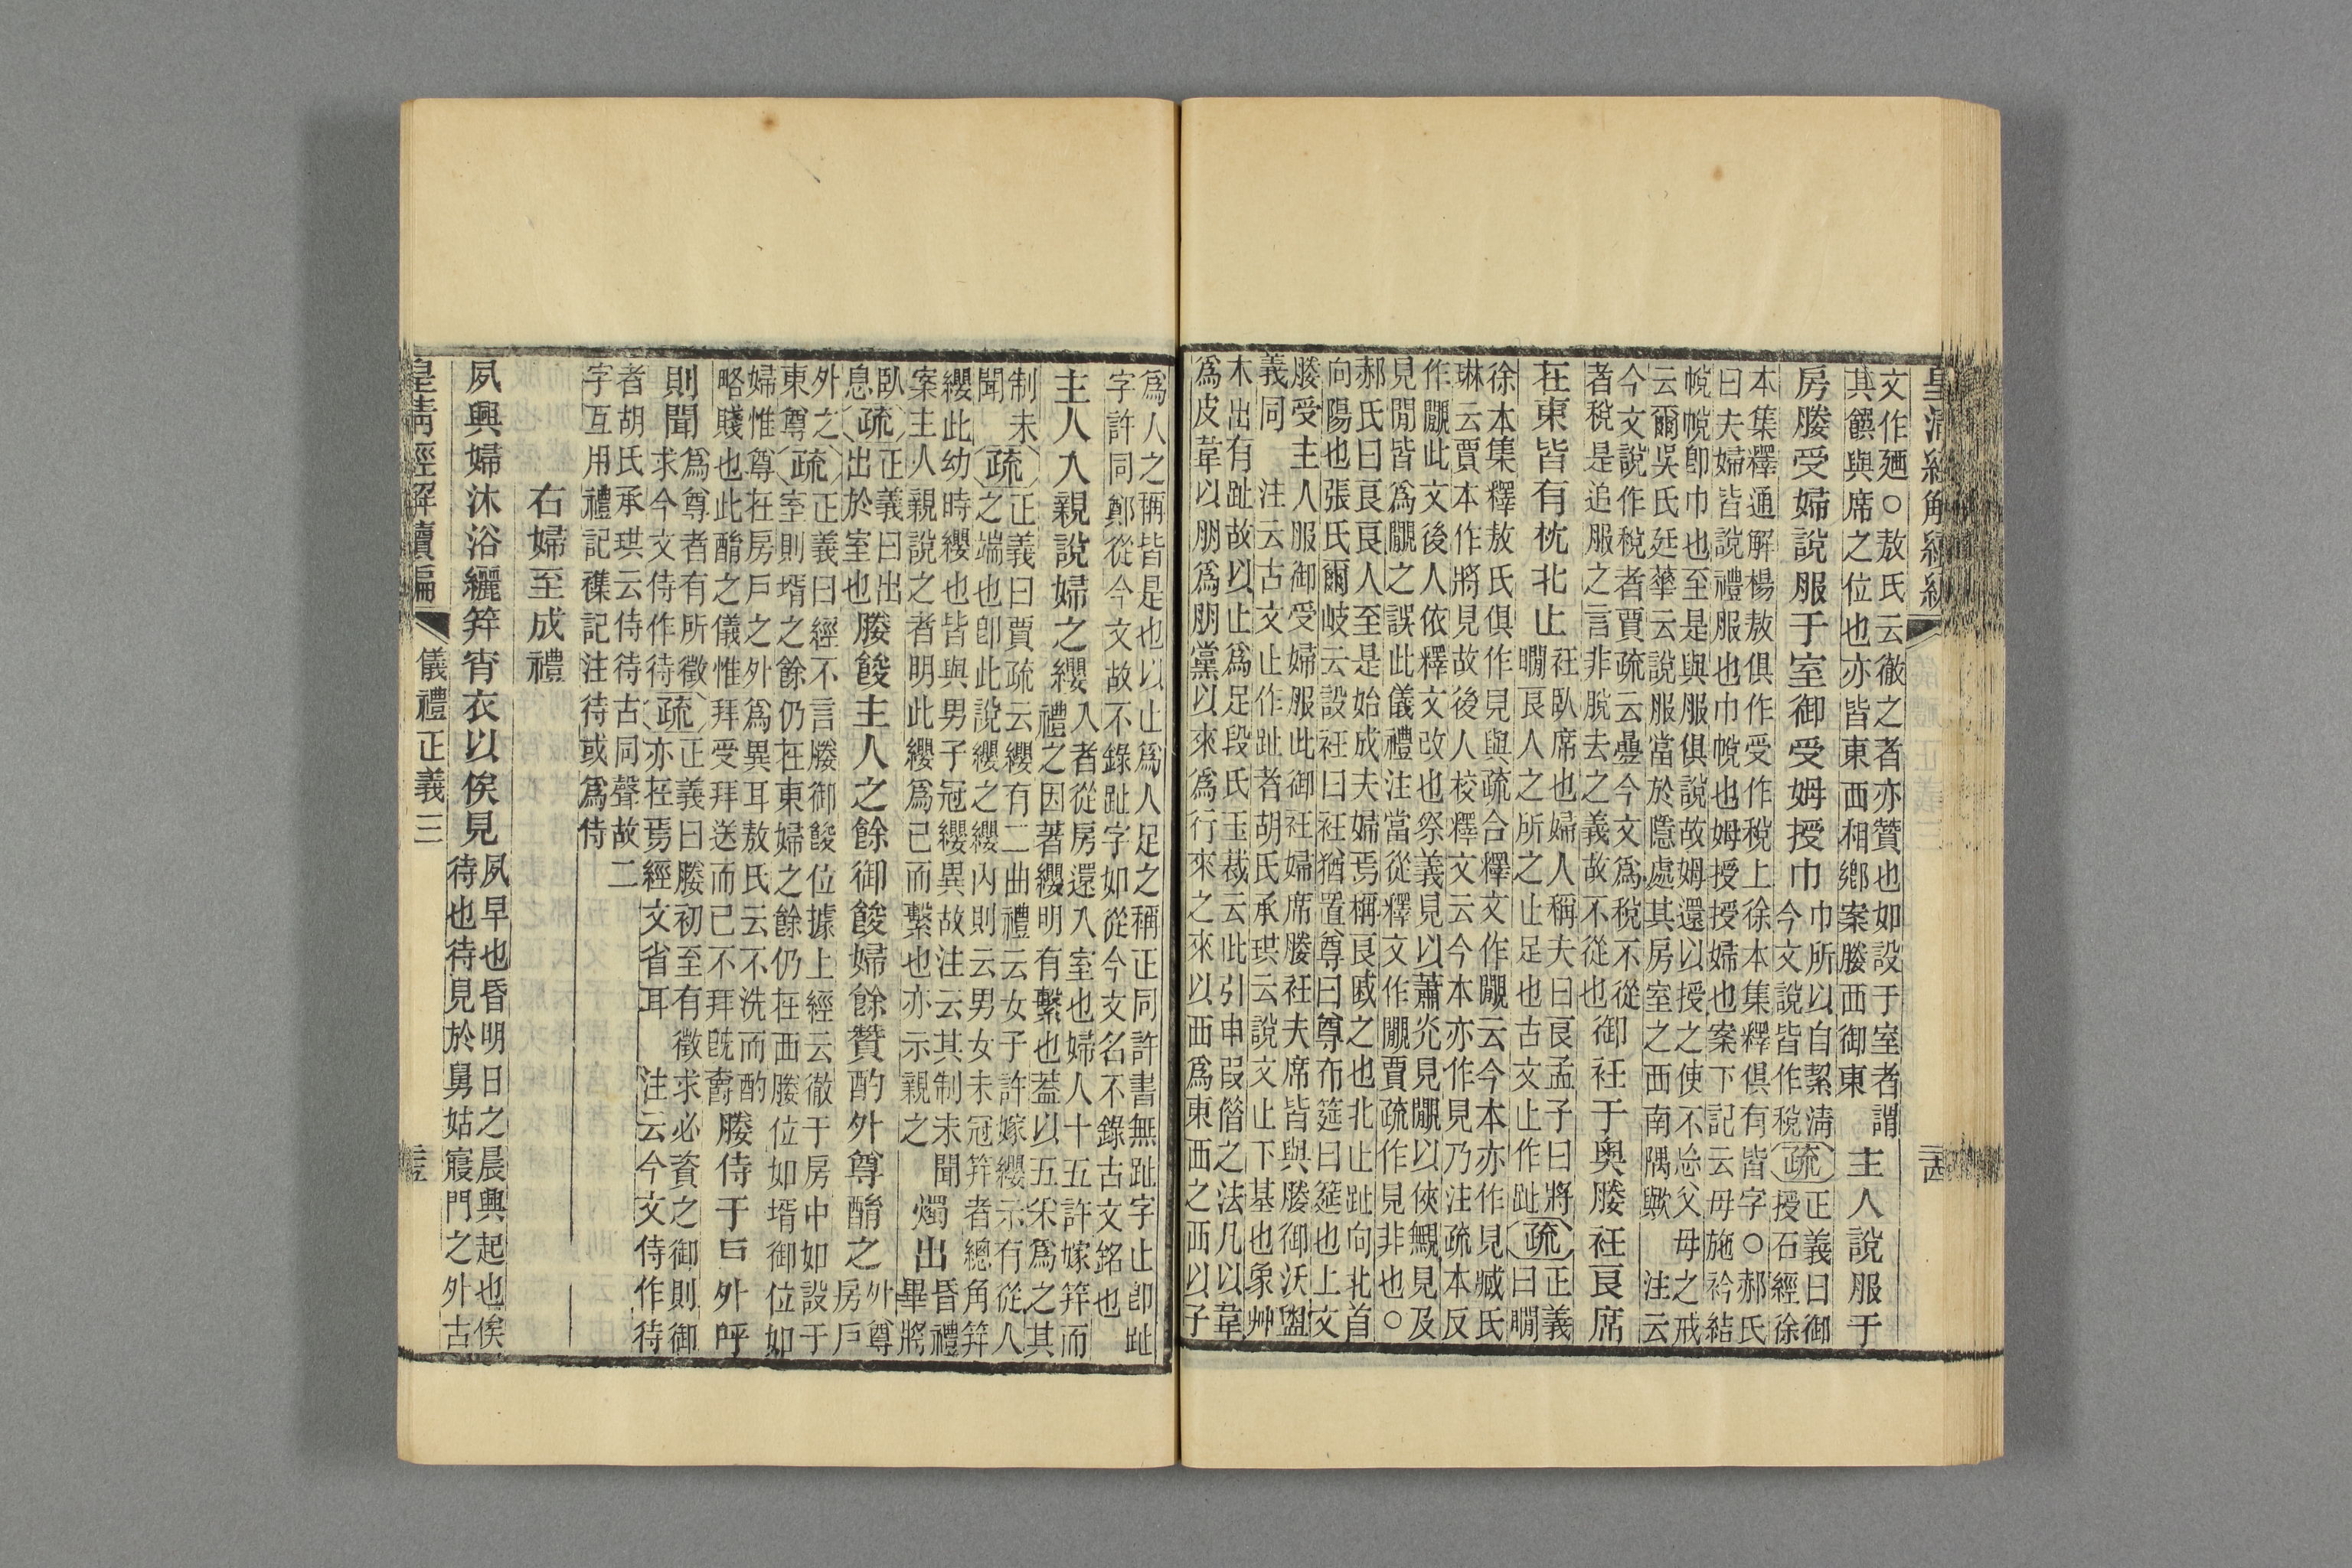 皇清經解續編
文作廼○敖氏云徹之者亦贊也如設于室者謂
其饌與席之位也亦皆東西相鄉案媵西御東
主人說服于
房媵受婦說服于室御受姆授巾
巾所以自絜清
今文說皆作稅
疏
正義曰御
授石經徐
本集釋通解楊敖俱作受作稅上徐本集釋俱有皆字○郝氏
曰夫婦皆說禮服也巾帨也姆授授婦也案下記云毋施衿結
帨帨卽巾也至是與服俱說故姆還以授之使不忘父母之戒
云爾吳氏廷華云說服當於隱處其房室之西南隅歟 注云
今文說作稅者賈疏云曡今文爲稅不從
者稅是追服之言非脫去之義故不從也
御衽于奥媵衽良席
在東皆有枕北止
衽臥席也婦人稱夫曰良孟子曰將
瞷良人之所之止足也古文止作趾
疏
正義
曰瞷
徐本集釋敖氏俱作見與疏合釋文作覸云今本亦作見臧氏
琳云賈本作將見故後人校釋文云今本亦作見乃注疏本反
作覸此文後人依釋文改也祭義見以蕭光見覸以俠甒見及
見閒皆爲覸之誤此儀禮注當從釋文作覸賈疏作見非也○
郝氏曰良良人至是始成夫婦焉稱良戚之也北止趾向北首
向陽也張氏爾岐云設衽曰衽猶置尊曰尊布筵曰筵也上文
媵受主人服御受婦服此御衽婦席媵衽夫席皆與媵御沃盥
義同 注云古文止作趾者胡氏承珙云說文止下基也象艸
木出有趾故以止爲足段氏玉裁云此引申叚偕之法凡以韋
爲皮韋以朋爲朋黨以來爲行來之來以西爲東西之西以子
爲人之稱皆是也以止爲人足之稱正同許書無趾字止卽趾
字許同鄭從今文故不錄趾字如從今文名不錄古文銘也
主人入親說婦之纓
入者從房還入室也婦人十五許嫁笄而
禮之因著纓明有繫也葢以五采爲之其
制未
聞
疏
正義曰賈疏云纓有二曲禮云女子許嫁纓示有從人
之端也卽此說纓之纓內則云男女未冠笄者總角笄
纓此幼時纓也皆與男子冠纓異故注云其制未聞
案主人親說之者明此纓爲已而繫也亦示親之
燭出
昏禮
畢將
臥
息
疏
正義曰出
出於室也
媵餕主人之餘御餕婦餘贊酌外尊酳之
外尊
房戶
外之
東尊
疏
正義曰經不言媵御餕位據上經云徹于房中如設于
室則壻之餘仍在東婦之餘仍在西媵位如壻御位如
婦惟尊在房戶之外爲異耳敖氏云不洗而酌
略賤也此酳之儀惟拜受拜送而已不拜既爵
媵侍于戶外呼
則聞
爲尊者有所徵
求今文侍作待
疏
正義曰媵初至有徵求必資之御則御
亦在焉經文省耳 注云今文侍作待
者胡氏承珙云侍待古同聲故二
字互用禮記襍記注待或爲侍
右婦至成禮
夙興婦沐浴纚笄宵衣以俟見
夙早也昏明日之晨興起也俟
待也待見於舅姑寢門之外古
皇清經解續編
儀禮正義三